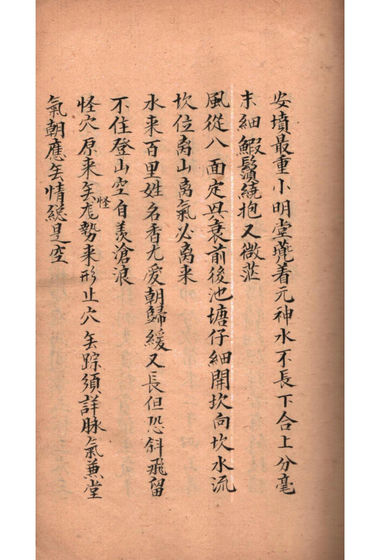 安墳最重小明堂蔭着元神水不長下合上分毫
末細鰕鬚繞抱又微茫
風從八面定興衰前後池塘仔細開坎向坎水流
坎位离山离氣必离来
水来百里姓名香尤爱朝歸緩又長但恐斜飛留
不住登山空自羡滄浪
怪穴原来矣怪龙勢来形止穴𠂉踪須詳脉氣兼堂
氣朝應𠂉情縂是空